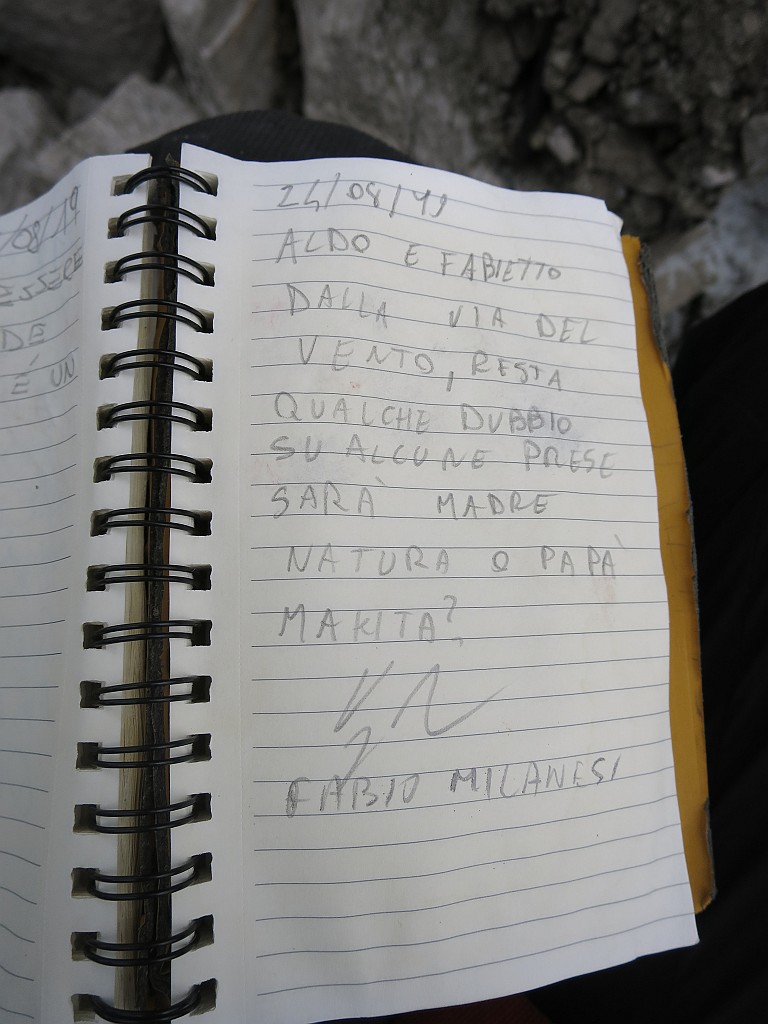 /08/19
ESSERE
DE
É UN
24/08/19
ALDO E FABIETTO
DALLA VIA DEL
VENTO, RESTA
QUALCHE DUBBIO
SU ALCUNE PRESE
SARÀ MADRE
NATURA O PAPÀ
MAKITA?
FABIO MILANESI